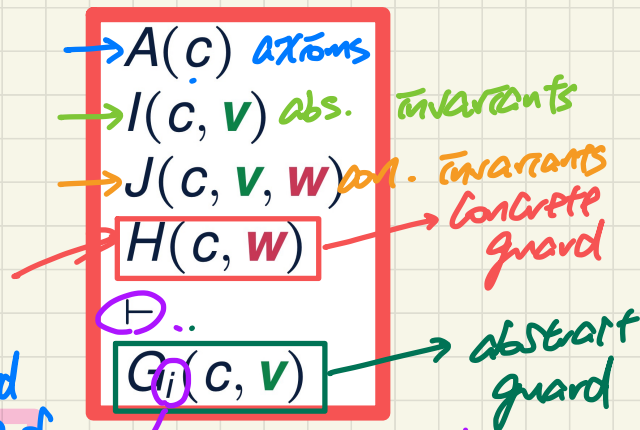 A(c) axioms
I(c, v) abs. invariants
J(c, v, w) con. invariants
H(c, w) concrete guard
⊢
Gᵢ(c, v) abstract guard